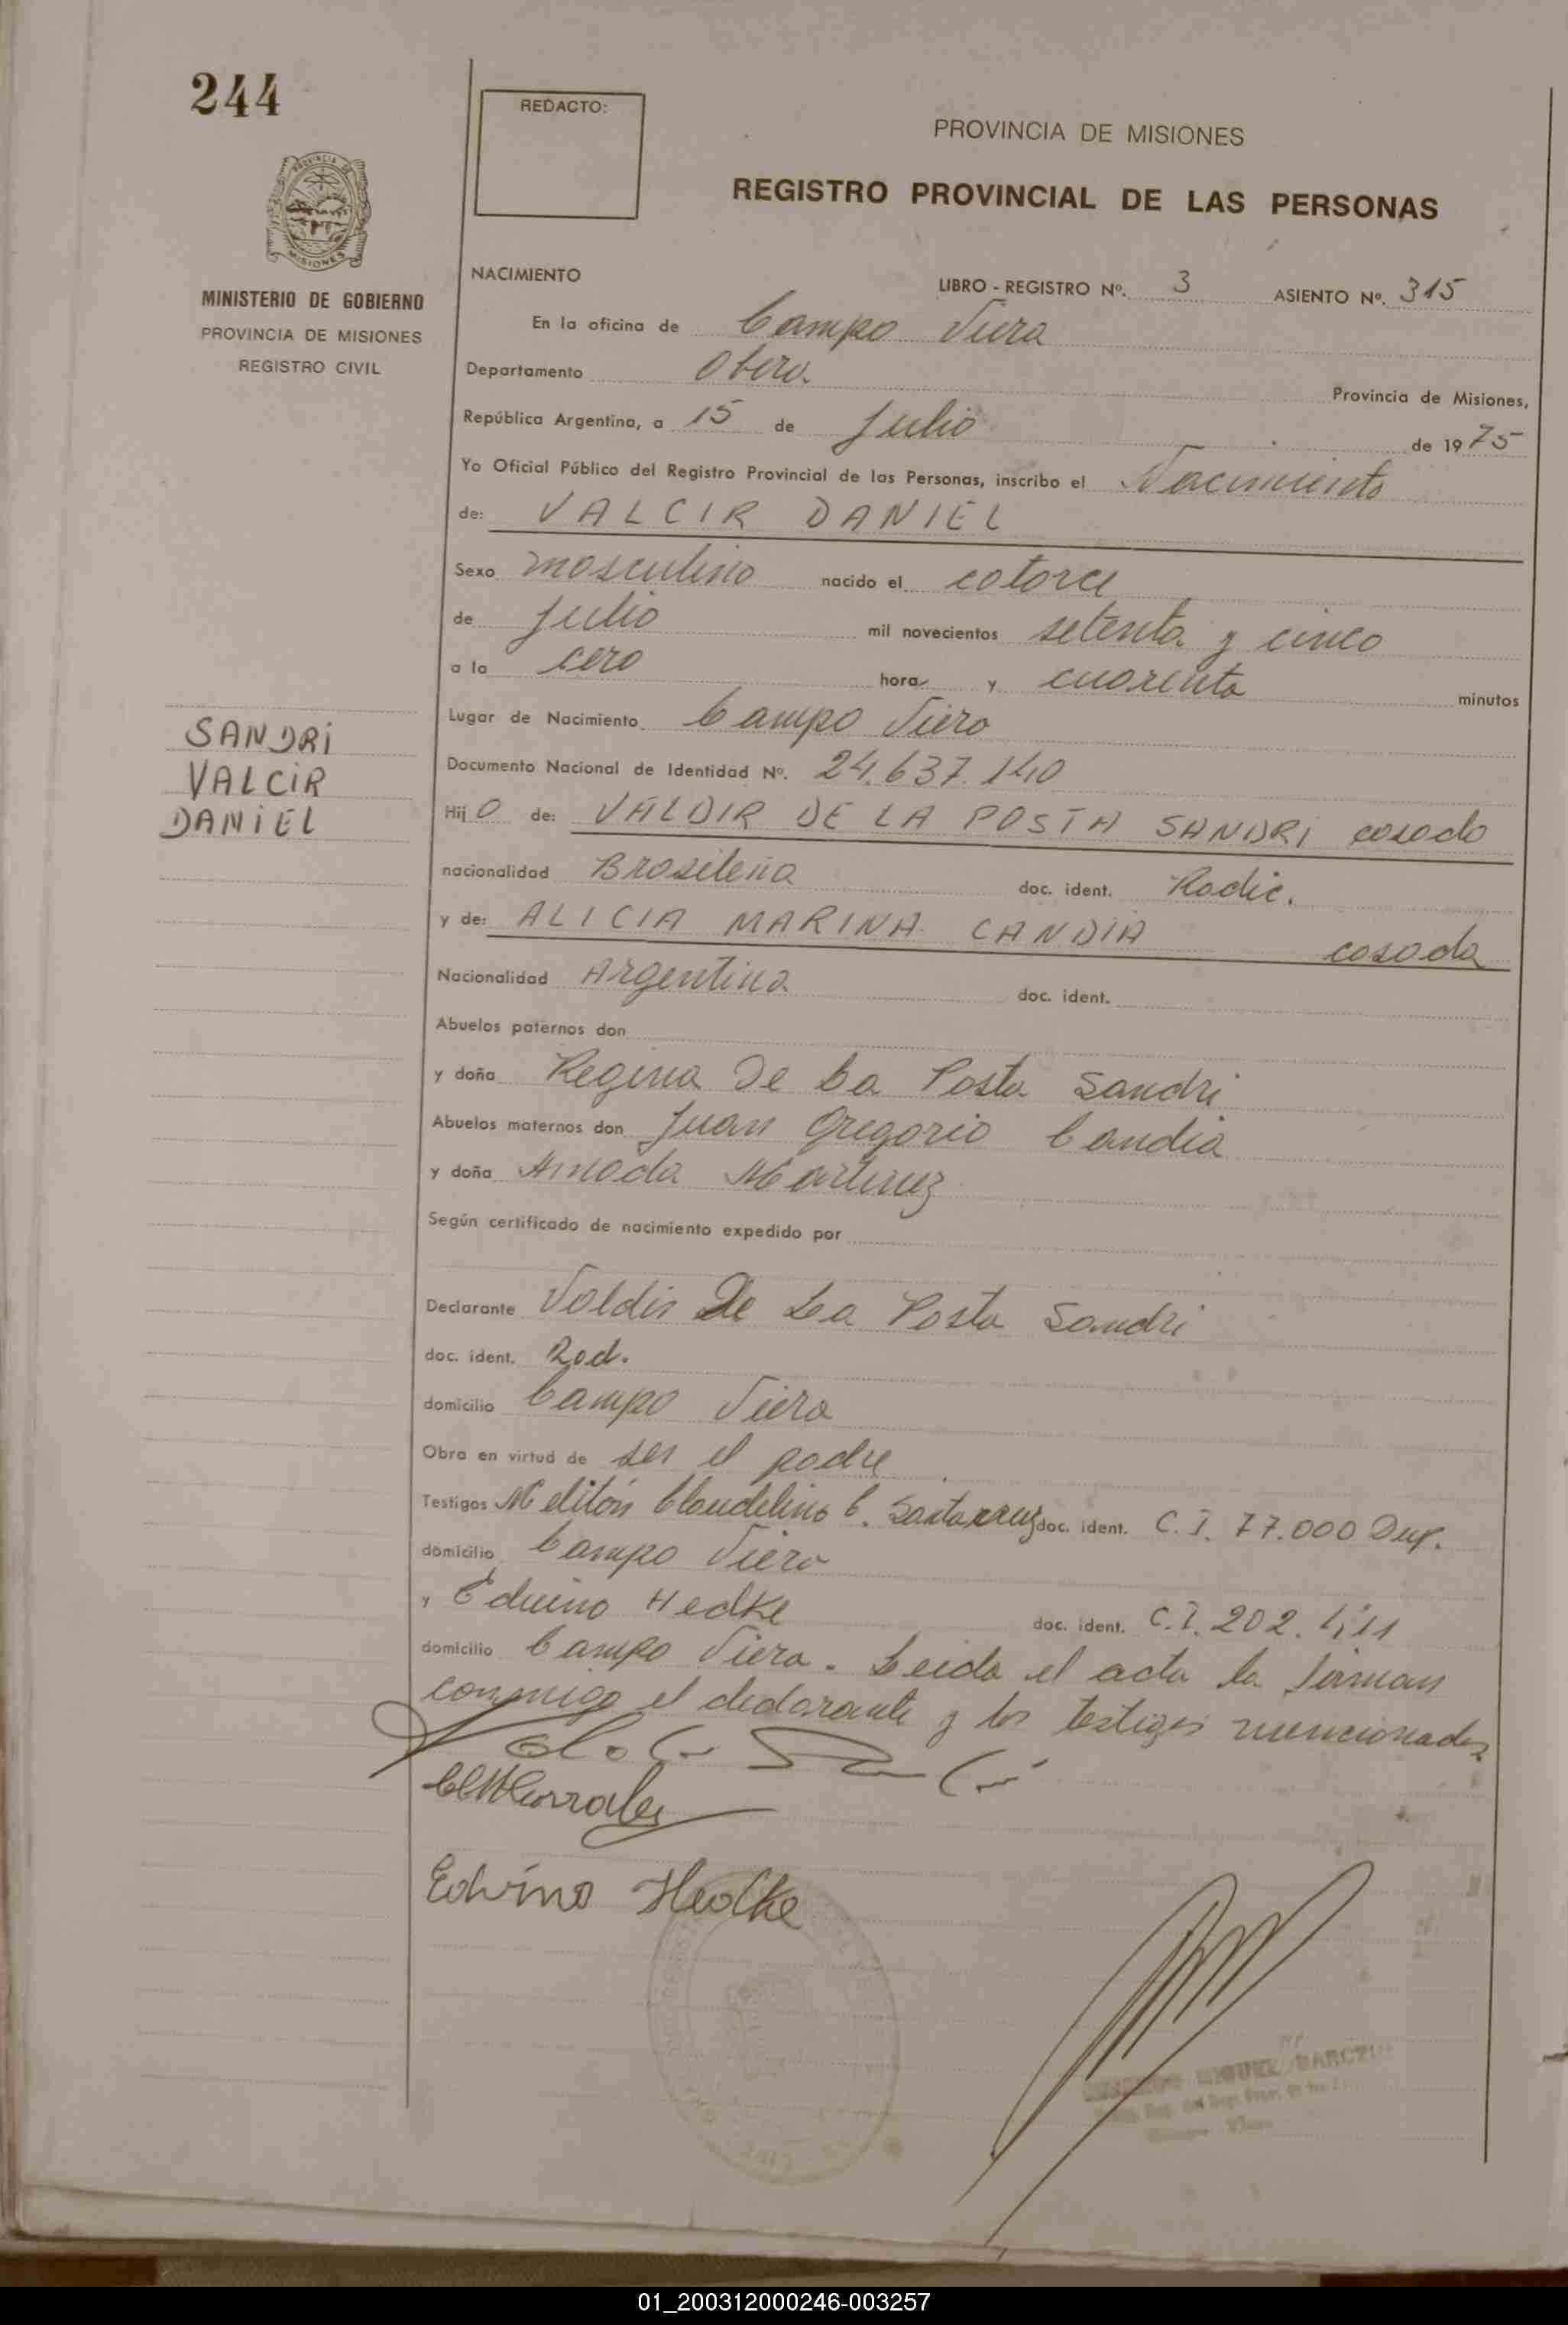 244
REDACTO:
PROVINCIA DE MISIONES
REGISTRO PROVINCIAL DE LAS PERSONAS
PROVINCIA DE
MISIONES
MINISTERIO DE GOBIERNO
PROVINCIA DE MISIONES
REGISTRO CIVIL
NACIMIENTO
LIBRO - REGISTRO Nº. 3 ASIENTO Nº. 315
En la oficina de Campo Viera
Departamento Obera. Provincia de Misiones,
República Argentina, a 15 de Julio de 1975
Yo Oficial Público del Registro Provincial de las Personas, inscribo el Nacimiento
de: VALCIR DANIEL
Sexo masculino nacido el catorce
de Julio mil novecientos setenta y cinco
a la cero hora y cuarenta minutos
SANDRI
VALCIR
DANIEL
Lugar de Nacimiento Campo Viera
Documento Nacional de Identidad Nº. 24.637.140
Hijo de: VALDIR DE LA POSTA SANDRI casado
nacionalidad Brasileña doc. ident. Radic.
y de: ALICIA MARINA CANDIA casada
Nacionalidad Argentina doc. ident.
Abuelos paternos don
y doña Regina De La Posta Sandri
Abuelos maternos don Juan Gregorio Candia
y doña Amada Martinez
Según certificado de nacimiento expedido por
Declarante Valdir De La Posta Sandri
doc. ident. Rad.
domicilio Campo Viera
Obra en virtud de ser el padre
Testigos Melitón Claudelino C. doc. ident. C.I. 77.000 Dup.
domicilio Campo Viera
y Eduino Hedke doc. ident. C.I. 202.
domicilio Campo Viera. Leida el acta la firman
conmigo el declarante y los testigos mencionados
Edvino Hedke
MIGUEL
01_200312000246-003257